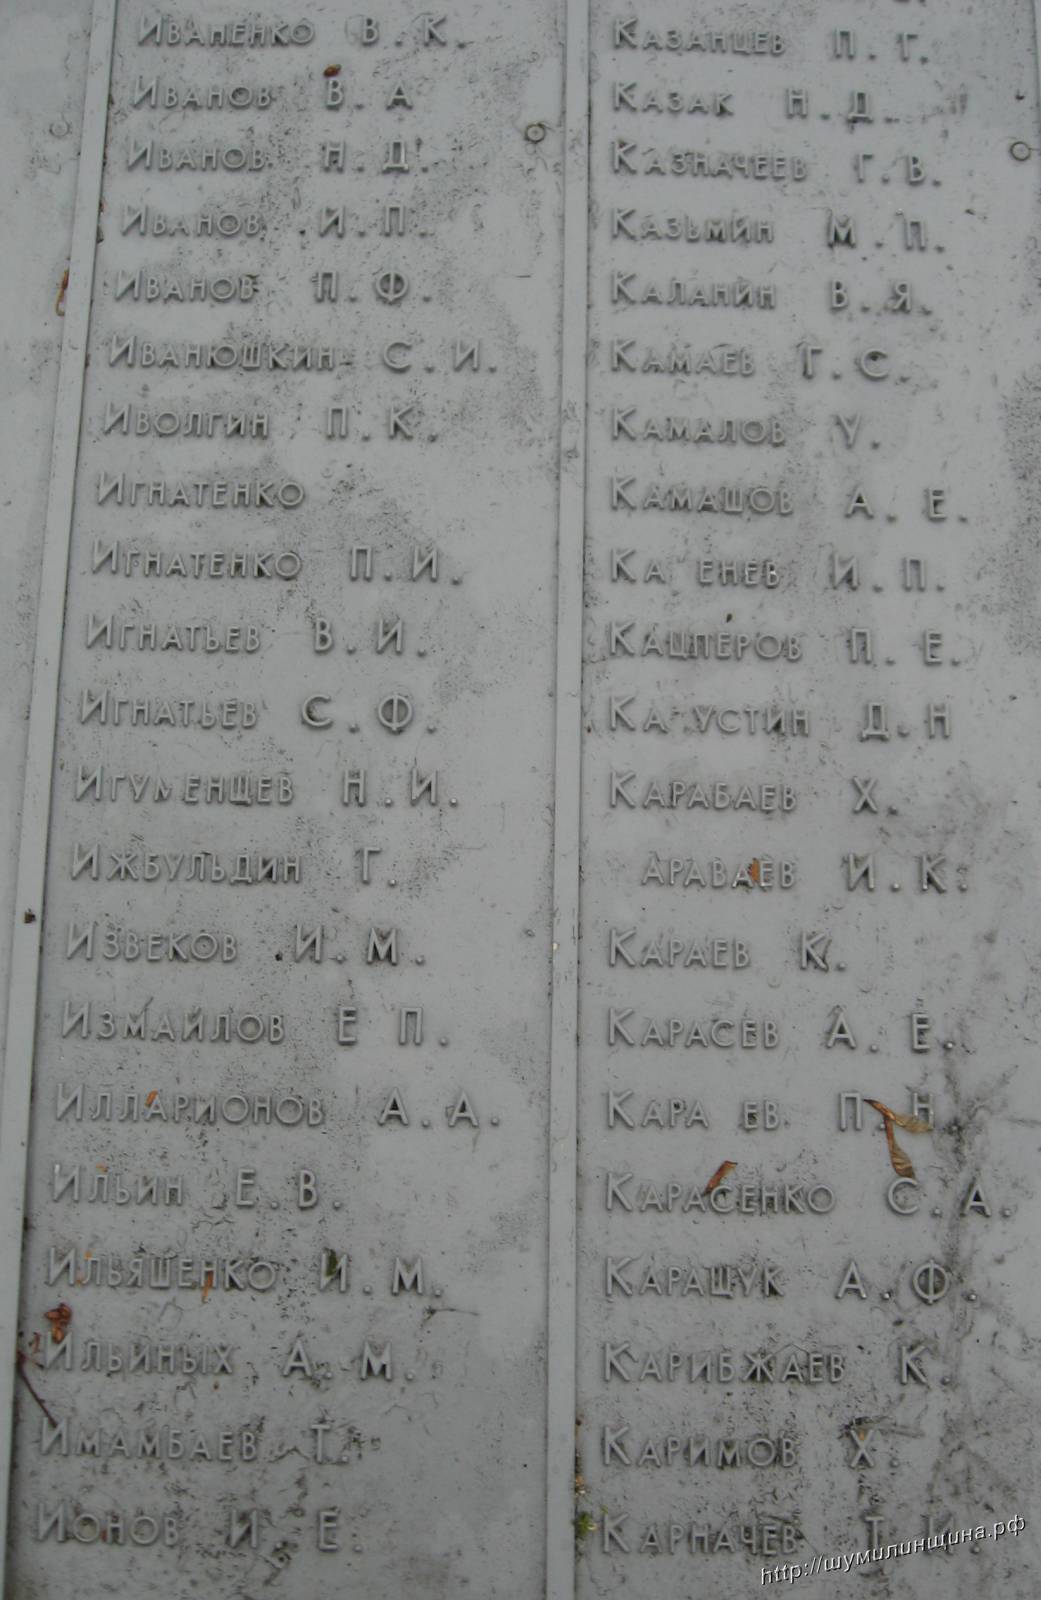 Иваненко В.К.
Иванов В.А
Иванов Н.Д.
Иванов И.П.
Иванов П.Ф.
Иванюшкин С.И.
Иволгин П.К.
Игнатенко
Игнатенко П.И.
Игнатьев В.И.
Игнатьев С.Ф.
Игуменщев Н.И.
Ижбульдин Г.
Извеков И.М.
Измайлов Е П.
Илларионов А.А.
Ильин Е.В.
Ильяшенко И.М.
Ильиных А.М.
Имамбаев Т.
Ионов И.Е.
Казанцев П.Г.
Казак Н.Д.
Казначеев Г.В.
Казьмин М.П.
Каланин В.Я.
Камаев Г.С.
Камалов У.
Камашов А.Е.
Ка енев И.П.
Кашперов П.Е.
Ка устин Д.Н
Карабаев Х.
араваев И.К.
Караев К.
Карасев А.Е.
Кара ев П.Н.
Карасенко С.А.
Каращук А.Ф.
Карибжаев К.
Каримов Х.
Карначев Т.И.
http://шумилинщина.рф